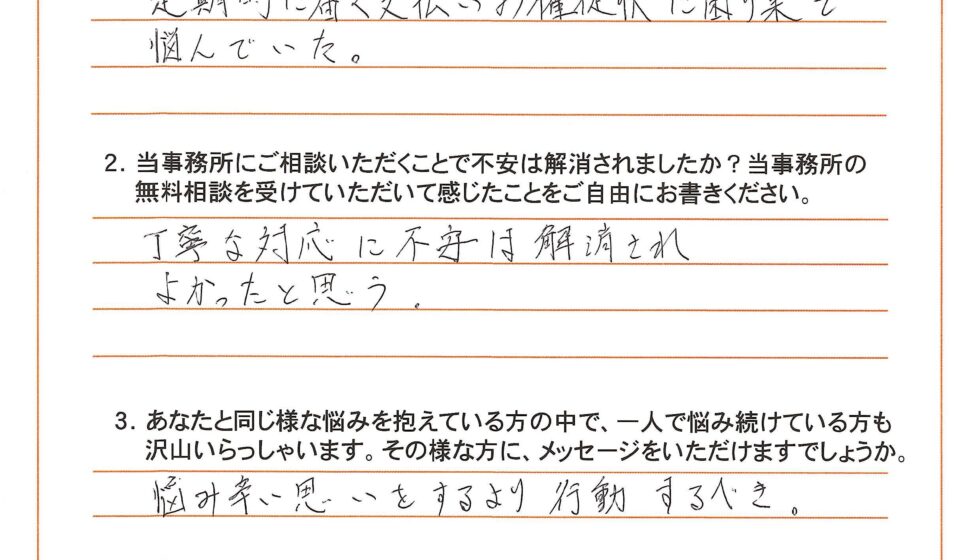 定期的に届く支払いの催促状に困り果て
悩んでいた。
2. 当事務所にご相談いただくことで不安は解消されましたか？当事務所の
無料相談を受けていただいて感じたことをご自由にお書きください。
丁寧な対応に不安は解消され
よかったと思う。
3. あなたと同じ様な悩みを抱えている方の中で、一人で悩み続けている方も
沢山いらっしゃいます。その様な方に、メッセージをいただけますでしょうか。
悩み辛い思いをするより行動するべき。